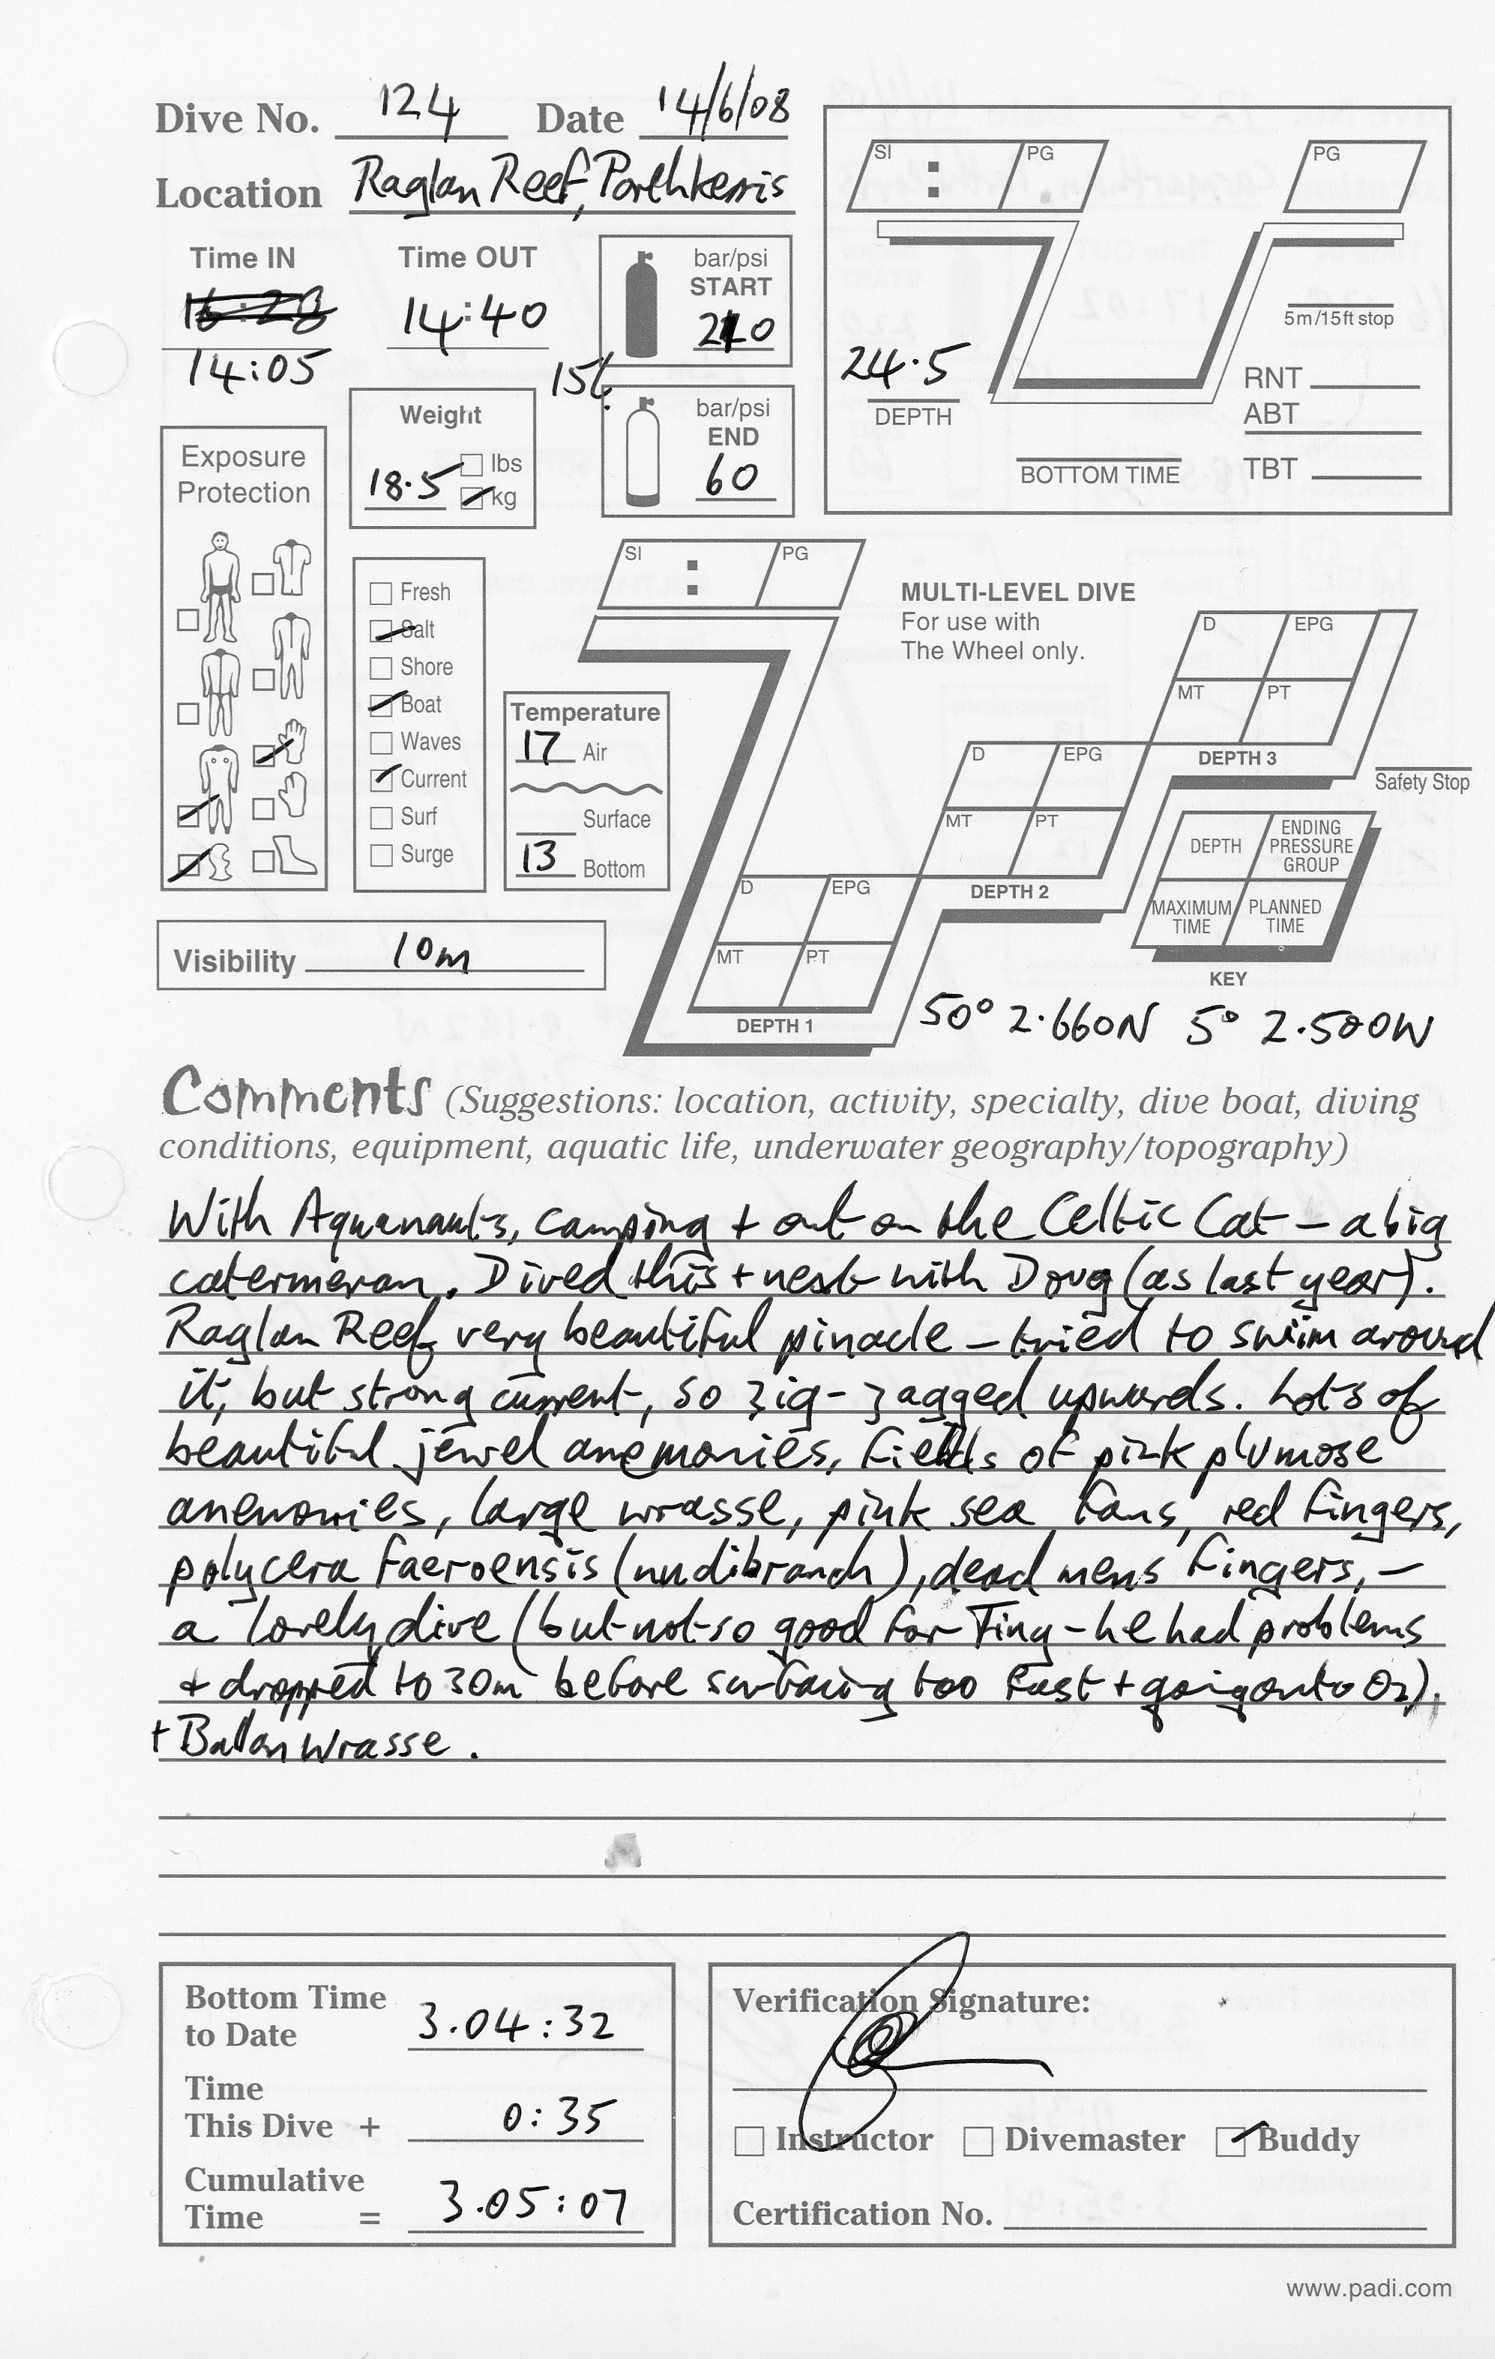 Dive No. 124 Date 14/6/08
Location Raglan Reef, Porthkerris
Time IN Time OUT
16:28 14:40
14:05
bar/psi
START
210
15L
bar/psi
END
60
Weight
18.5 lbs
kg
Exposure
Protection
Fresh
Salt
Shore
Boat
Waves
Current
Surf
Surge
Temperature
17 Air
Surface
13 Bottom
Visibility 10m
SI : PG PG
5m/15ft stop
24.5
DEPTH
BOTTOM TIME
RNT
ABT
TBT
SI : PG
MULTI-LEVEL DIVE
For use with
The Wheel only.
D EPG
MT PT
DEPTH 3
Safety Stop
D EPG
MT PT
DEPTH 2
D EPG
MT PT
DEPTH 1
DEPTH ENDING PRESSURE GROUP
MAXIMUM TIME PLANNED TIME
KEY
50° 2.660N 5° 2.500W
Comments (Suggestions: location, activity, specialty, dive boat, diving
conditions, equipment, aquatic life, underwater geography/topography)
With Aquanauts, camping + out on the Celtic Cat – a big
catermeran. Dived this + next with Doug (as last year).
Raglan Reef very beautiful pinacle – tried to swim around
it, but strong current, so zig-zagged upwards. Lots of
beautiful jewel anemonies, fields of pink plumose
anemonies, large wrasse, pink sea fans, red fingers,
polycera faeroensis (nudibranch), dead mens fingers, –
a lovely dive (but not so good for Tiny – he had problems
+ dropped to 30m before surfacing too fast + going onto O2),
+ Ballan wrasse.
Bottom Time
to Date 3.04:32
Time
This Dive + 0:35
Cumulative
Time = 3.05:07
Verification Signature:
Instructor Divemaster Buddy
Certification No.
www.padi.com